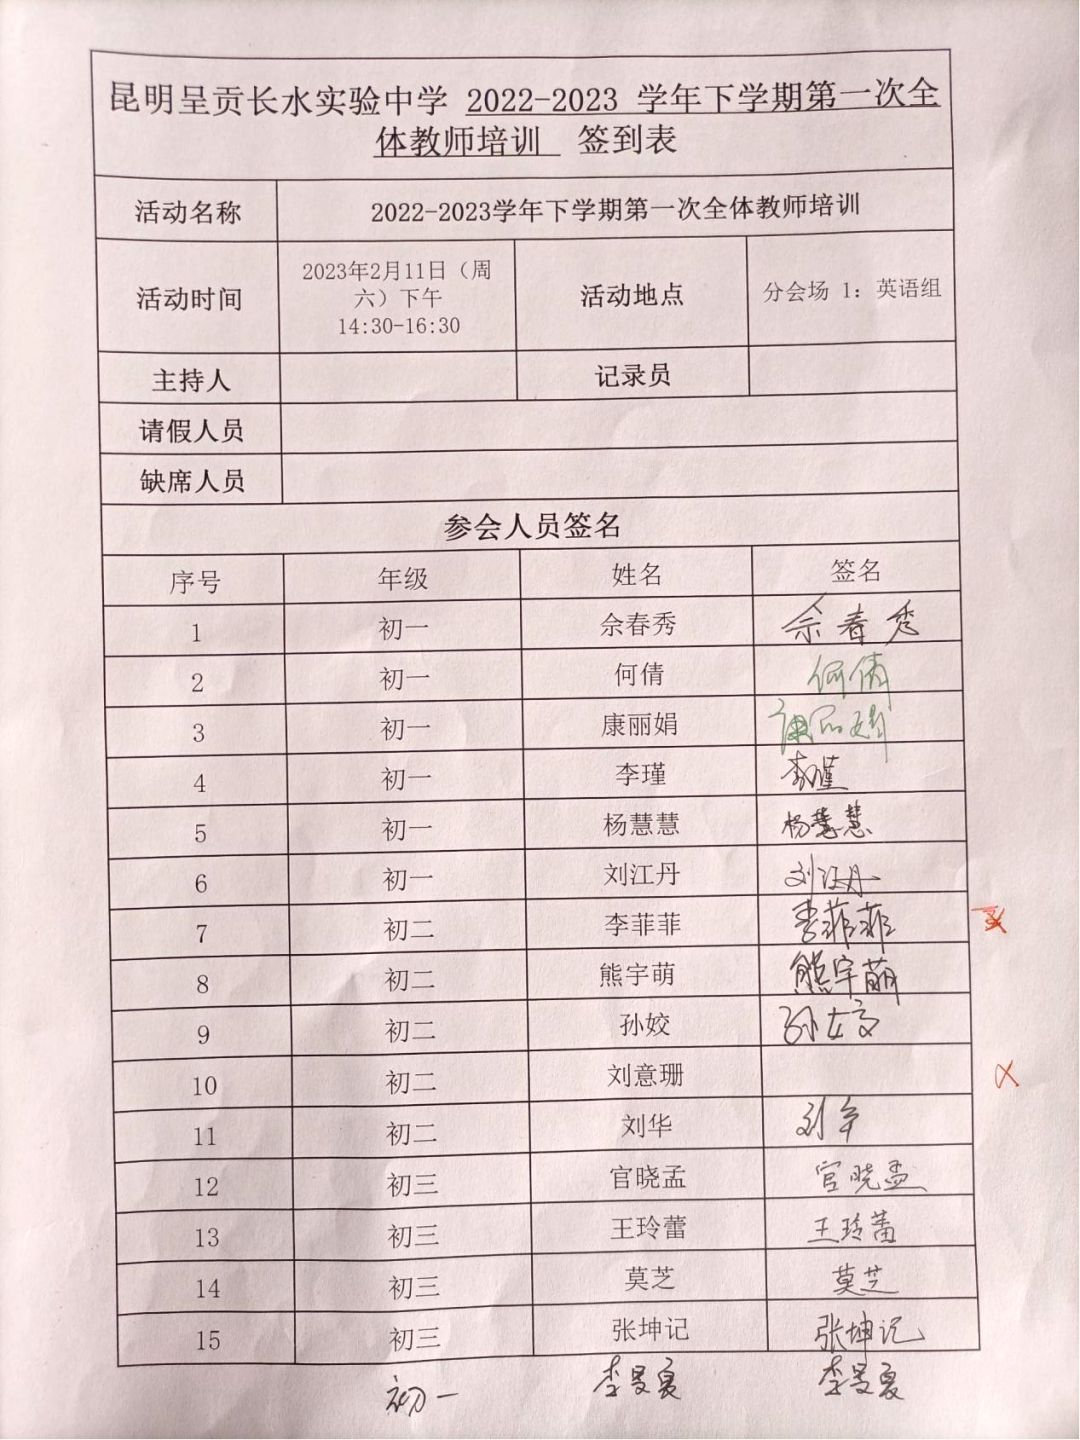 昆明呈贡长水实验中学 2022-2023 学年下学期第一次全
体教师培训 签到表
活动名称 2022-2023学年下学期第一次全体教师培训
活动时间 2023年2月11日（周
六）下午
14:30-16:30 活动地点 分会场 1：英语组
主持人 记录员
请假人员
缺席人员
参会人员签名
序号 年级 姓名 签名
1 初一 佘春秀 佘春秀
2 初一 何倩 何倩
3 初一 康丽娟 康丽娟
4 初一 李瑾 李瑾
5 初一 杨慧慧 杨慧慧
6 初一 刘江丹 刘江丹
7 初二 李菲菲 李菲菲
8 初二 熊宇萌 熊宇萌
9 初二 孙姣 孙姣
10 初二 刘意珊
11 初二 刘华 刘华
12 初三 官晓孟 官晓孟
13 初三 王玲蕾 王玲蕾
14 初三 莫芝 莫芝
15 初三 张坤记 张坤记
初一